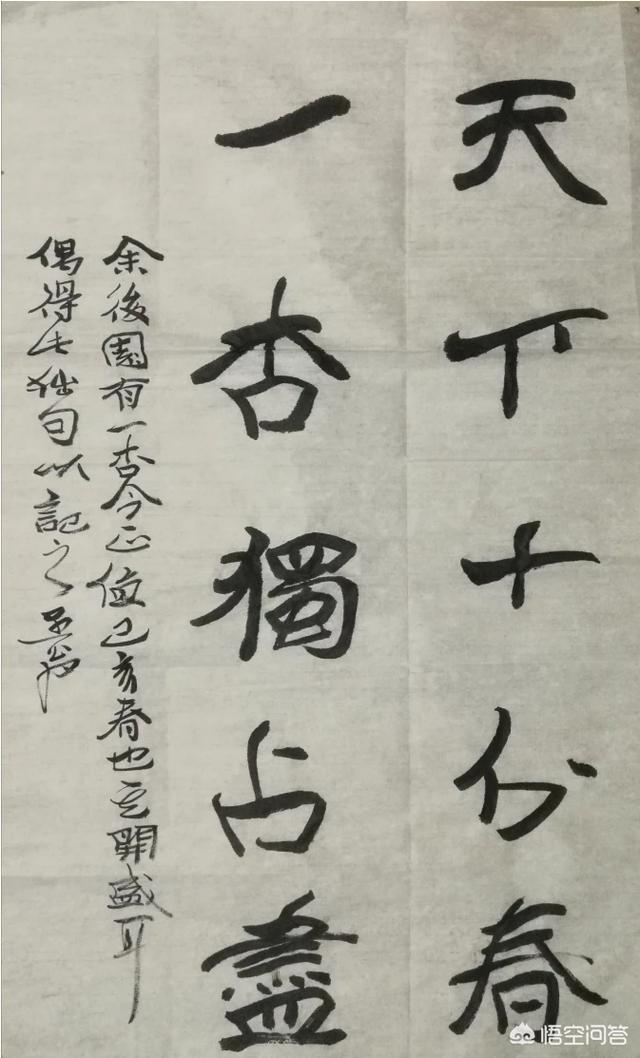 天下十分春
一杏獨占盡
余後園有一杏今正值己亥春也開盛耳
偶得此拙句以記之
悟空问答